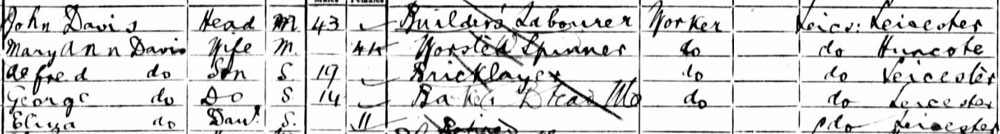 John Davis Head M. 43 Builders Labourer Worker Leics: Leicester
Mary Ann Davis Wife M. 44 Worsted Spinner do do Huncote
Alfred do Son S. 19 Bricklayer do do Leicester
George do Do S. 14 do do Leicester
Eliza do Daur. S. 11 do Leicester